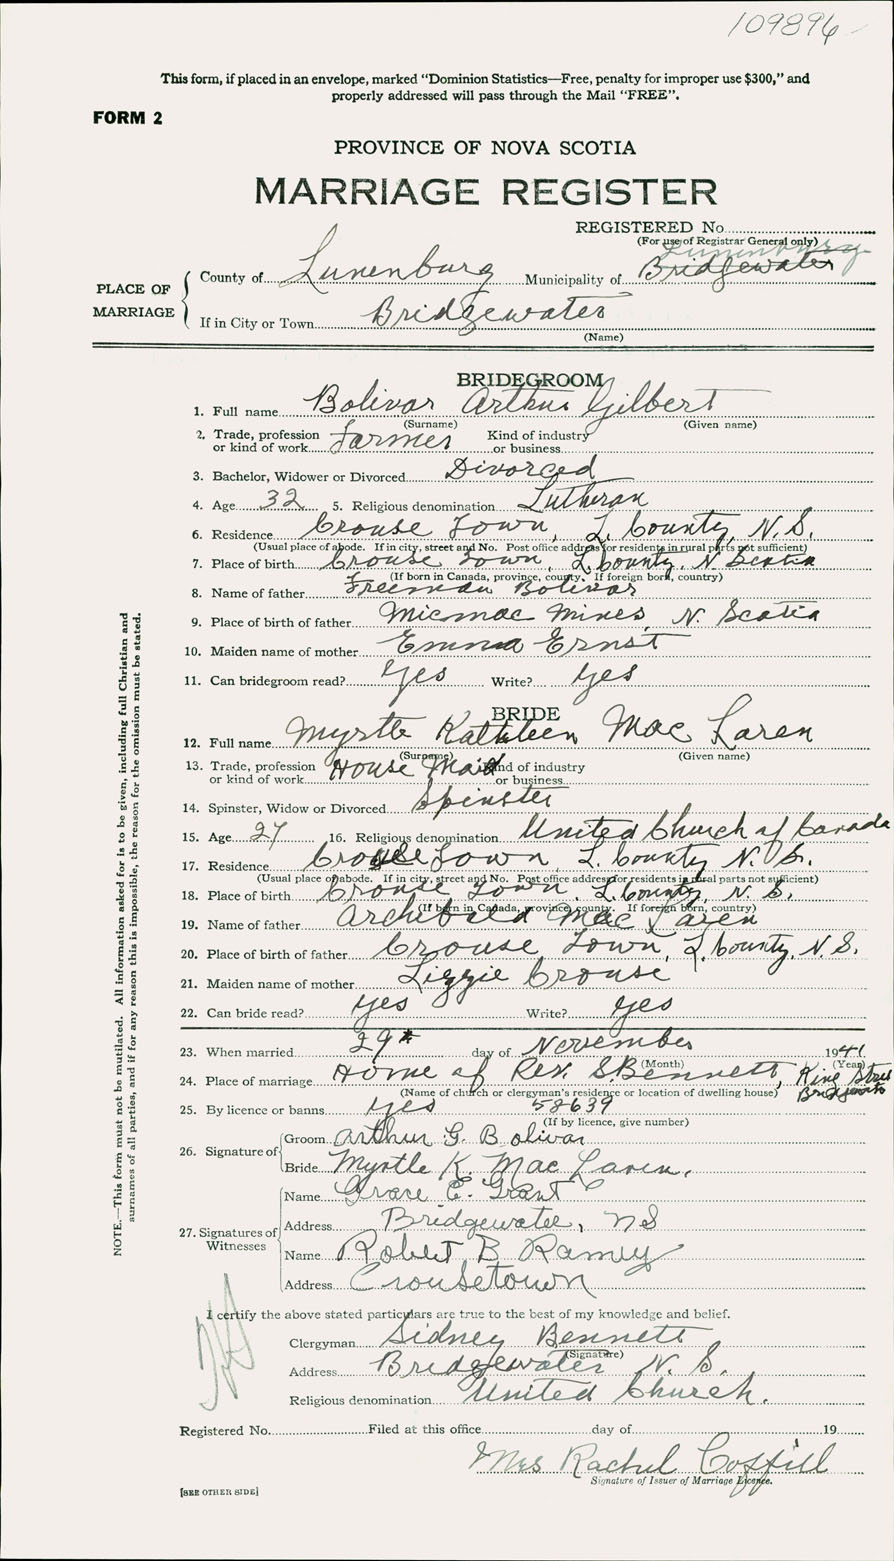 109896
This form, if placed in an envelope, marked “Dominion Statistics—Free, penalty for improper use $300,” and
properly addressed will pass through the Mail “FREE”.
FORM 2
PROVINCE OF NOVA SCOTIA
MARRIAGE REGISTER
REGISTERED No.
(For use of Registrar General only)
Lunenburg
PLACE OF MARRIAGE
County of Lunenburg Municipality of Bridgewater
If in City or Town Bridgewater
(Name)
BRIDEGROOM
1. Full name Bolivar Arthur Gilbert
(Surname) (Given name)
2. Trade, profession or kind of work Farmer Kind of industry or business
3. Bachelor, Widower or Divorced Divorced
4. Age 32 5. Religious denomination Lutheran
6. Residence Crouse Town, L. County, N. S.
(Usual place of abode. If in city, street and No. Post office address for residents in rural parts not sufficient)
7. Place of birth Crouse Town, L. County, N. Scotia
(If born in Canada, province, county. If foreign born, country)
8. Name of father Freeman Bolivar
9. Place of birth of father Micmac Mines, N. Scotia
10. Maiden name of mother Emma Ernst
11. Can bridegroom read? Yes Write? Yes
BRIDE
12. Full name Myrtle Kathleen Mac Laren
(Surname) (Given name)
13. Trade, profession or kind of work House Maid Kind of industry or business
14. Spinster, Widow or Divorced Spinster
15. Age 27 16. Religious denomination United Church of Canada
17. Residence Crouse Town L. County N. S.
(Usual place of abode. If in city, street and No. Post office address for residents in rural parts not sufficient)
18. Place of birth Crouse Town, L. County, N. S.
(If born in Canada, province, county. If foreign born, country)
19. Name of father Archibald Mac Laren
20. Place of birth of father Crouse Town, L. County, N. S.
21. Maiden name of mother Lizzie Crouse
22. Can bride read? Yes Write? Yes
23. When married 29th day of November 1941
(Month) (Year)
24. Place of marriage Home of Rev. S. Bennett, King Street Bridgewater
(Name of church or clergyman's residence or location of dwelling house)
25. By licence or banns Yes 58639
(If by licence, give number)
26. Signature of
Groom Arthur G. Bolivar
Bride Myrtle K. Mac Laren.
27. Signatures of Witnesses
Name Grace E. Grant
Address Bridgewater, NS
Name Robert B Ramey
Address Crousetown
I certify the above stated particulars are true to the best of my knowledge and belief.
Clergyman Sidney Bennett
(Signature)
Address Bridgewater N. S.
Religious denomination United Church.
Registered No. Filed at this office day of 19
Mrs Rachel Coffill
Signature of Issuer of Marriage Licence.
[SEE OTHER SIDE]
NOTE.—This form must not be mutilated. All information asked for is to be given, including full Christian and
surnames of all parties, and if for any reason this is impossible, the reason for the omission must be stated.